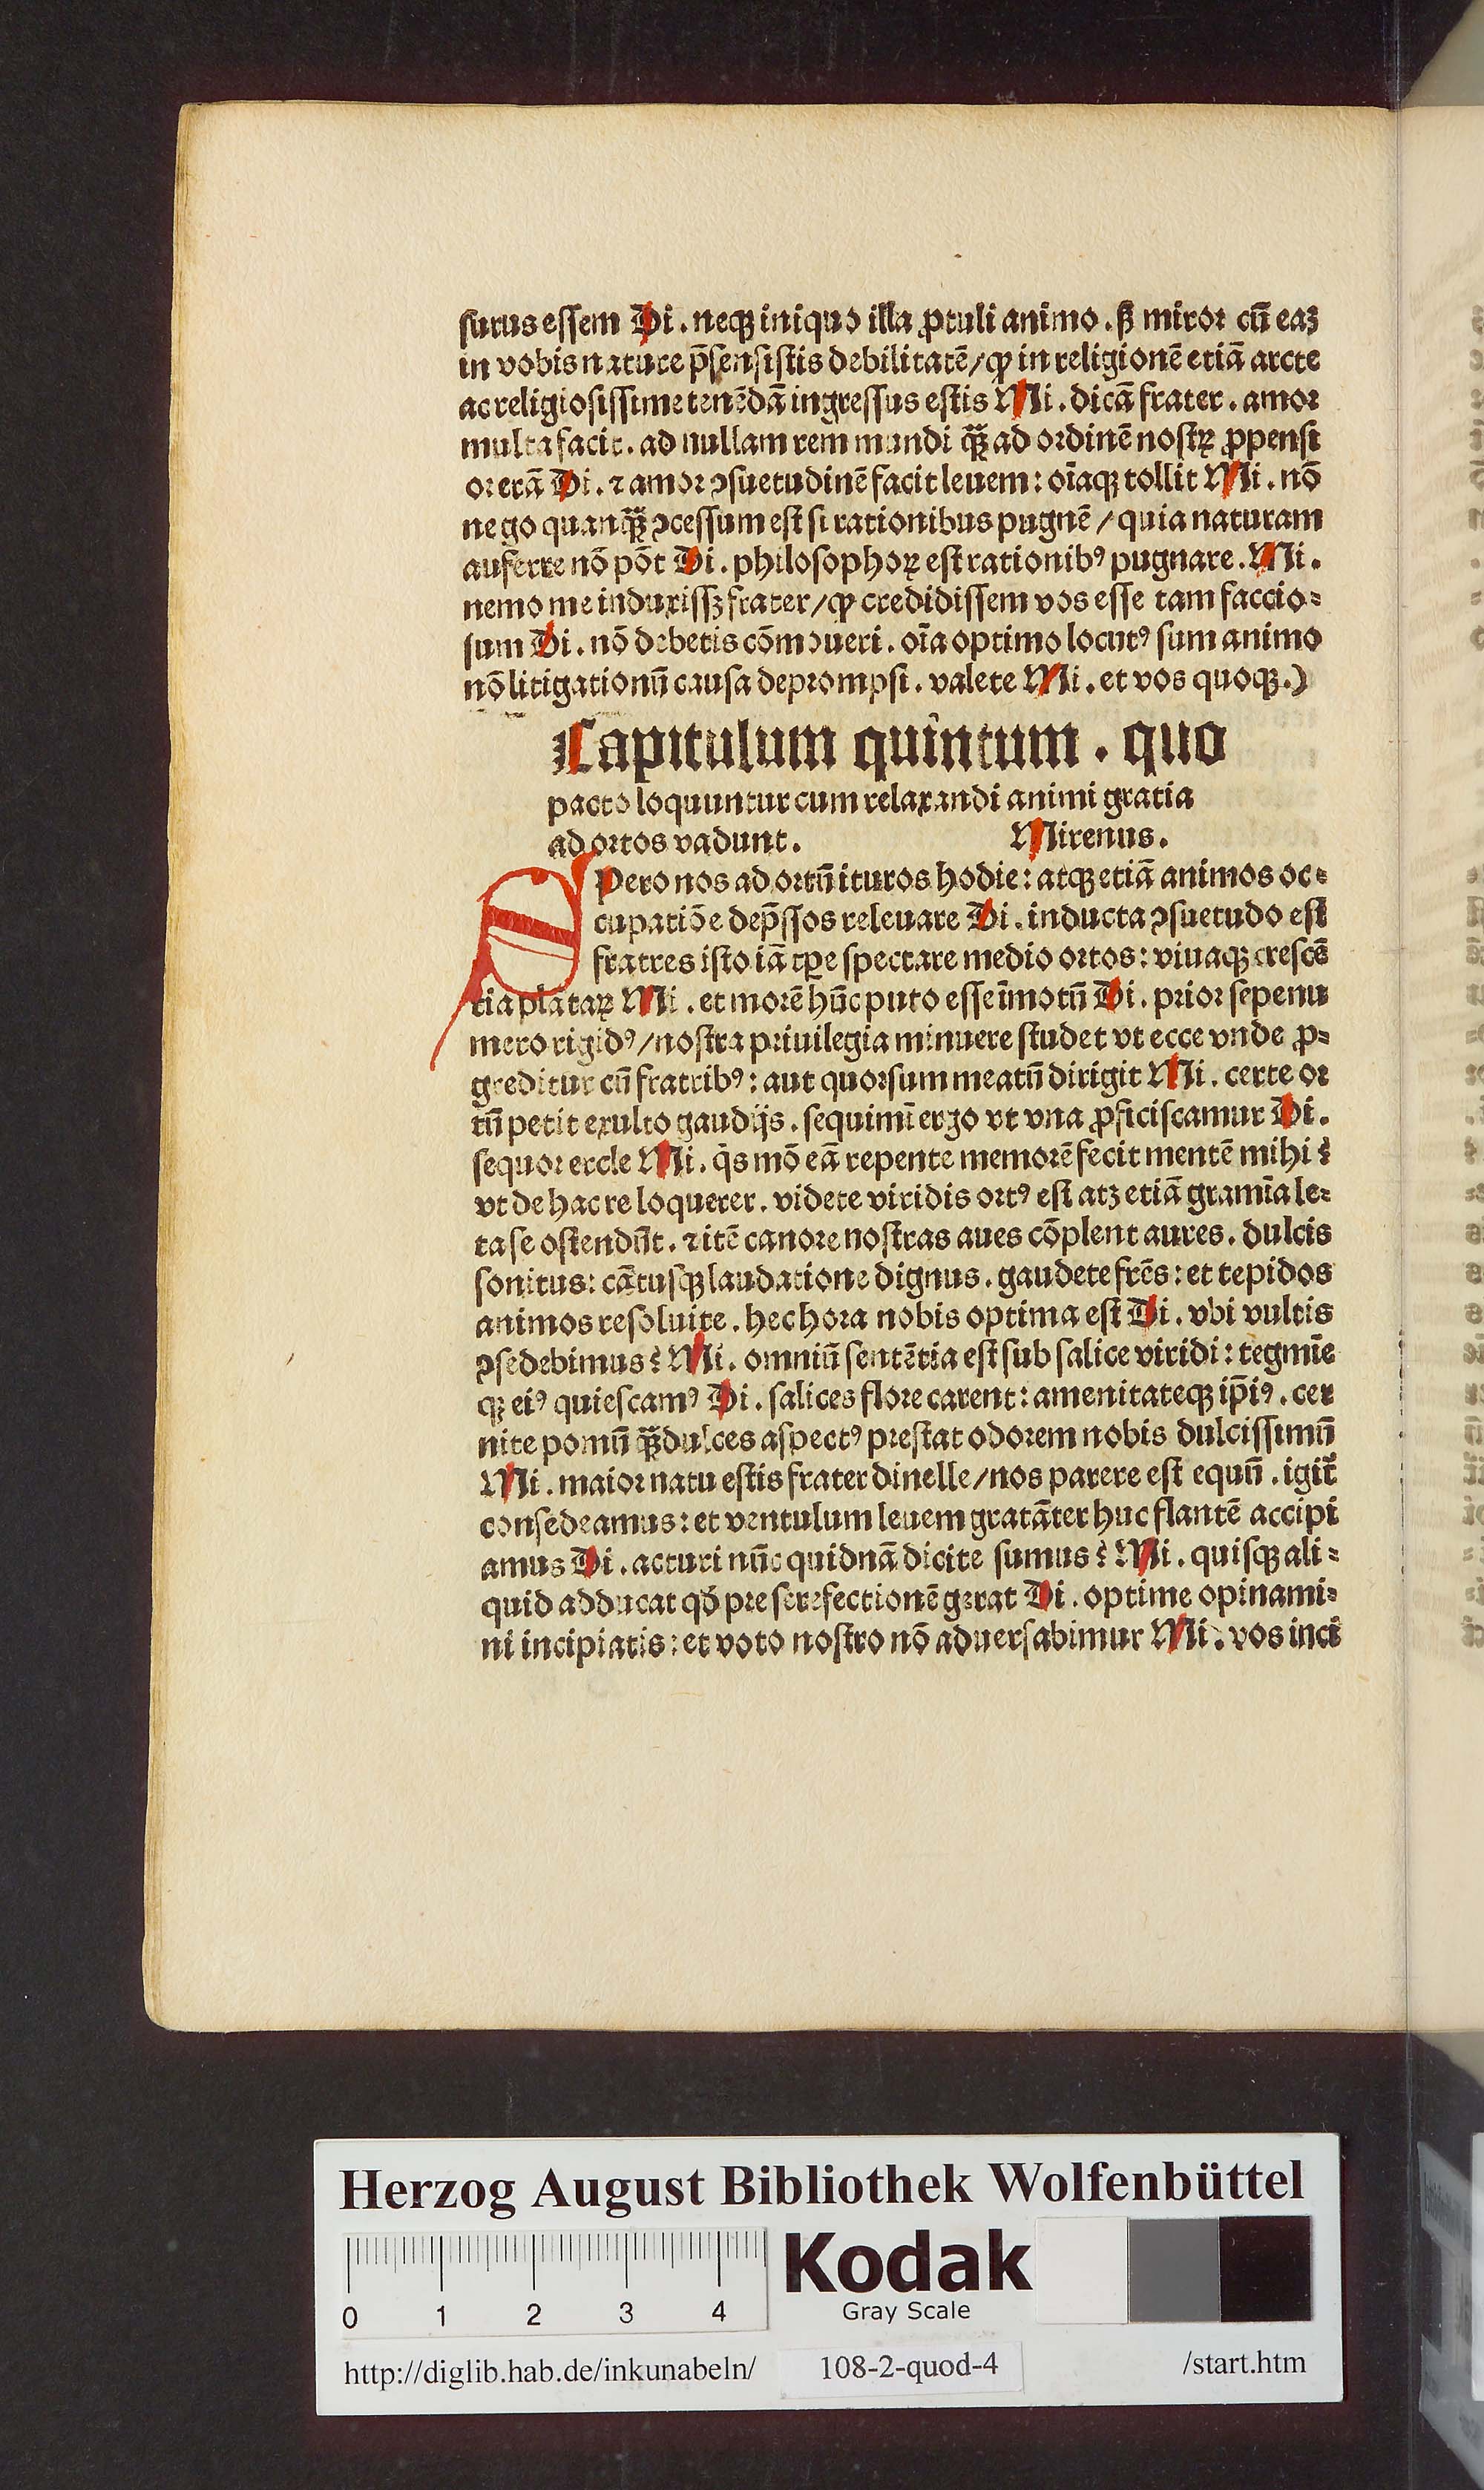 surus essem Di. neqꝫ iniquo illa ꝓtuli animo. sꝫ miror cū eaꝫ
in vobis nature p̄sensistis debilitatē/ꝙ in religionē etiā arcte
ac religiosissime tenēdā ingressus estis Mi. dicā frater. amor
multa facit. ad nullam rem mundi q̄ꝫ ad ordinē nostꝝ ꝓpensi
or erā Di. ⁊ amor ꝯsuetudinē facit leuem: oīaqꝫ tollit Mi. nō
nego quanq̄ꝫ ꝯcessum est si rationibus pugnē/quia naturam
auferre nō pōt Di. philosophoꝝ est rationibꝰ pugnare. Mi.
nemo me induxissꝫ frater/ꝙ credidissem vos esse tam faccio⸗
sum Di. nō debetis cōmoueri. oīa optimo locutꝰ sum animo
nō litigationū causa deprompsi. valete Mi. et vos quoqꝫ.)
Capitulum quintum. quo
pacto loquuntur cum relaxandi animi gratia
ad ortos vadunt. Mirenus.
Spero nos ad ortū ituros hodie: atqꝫ etiā animos oc⸗
cupatiōe dep̄ssos releuare Di. inducta ꝯsuetudo est
fratres isto iā tꝑe spectare medio ortos: viuaqꝫ crescē
tia plātaꝝ Mi. et morē hūc puto esse īmotū Di. prior sepenu
mero rigidꝰ/nostra priuilegia minuere studet vt ecce vnde ꝓ⸗
greditur cū fratribꝰ: aut quorsum meatū dirigit Mi. certe or
tū petit exulto gaudijs. sequimī ergo vt vna ꝓficiscamur Di.
sequor ercle Mi. q̄s mō eā repente memorē fecit mentē mihi?
vt de hac re loquerer. videte viridis ortꝰ est atꝫ etiā gramīa le⸗
ta se ostendūt. ⁊ itē canore nostras aues cōplent aures. dulcis
sonitus: cātusqꝫ laudatione dignus. gaudete frēs: et tepidos
animos resoluite. hec hora nobis optima est Di. vbi vultis
ꝯsedebimus? Mi. omniū sentētia est sub salice viridi: tegmīe
qꝫ eiꝰ quiescamꝰ Di. salices flore carent: amenitateqꝫ ip̄iꝰ. cer
nite pomū q̄ꝫ dulces aspectꝰ prestat odorem nobis dulcissimū
Mi. maior natu estis frater dinelle/nos parere est equū. igit̄
consedeamus: et ventulum leuem gratāter huc flantē accipi
amus Di. acturi nūc quidnā dicite sumus? Mi. quisqꝫ ali⸗
quid adducat qđ pre se refectionē gerat Di. optime opinami⸗
ni incipiatis: et voto nostro nō aduersabimur Mi. vos inci
Herzog August Bibliothek Wolfenbüttel
0 1 2 3 4
Kodak
Gray Scale
http://diglib.hab.de/inkunabeln/ 108-2-quod-4 /start.htm